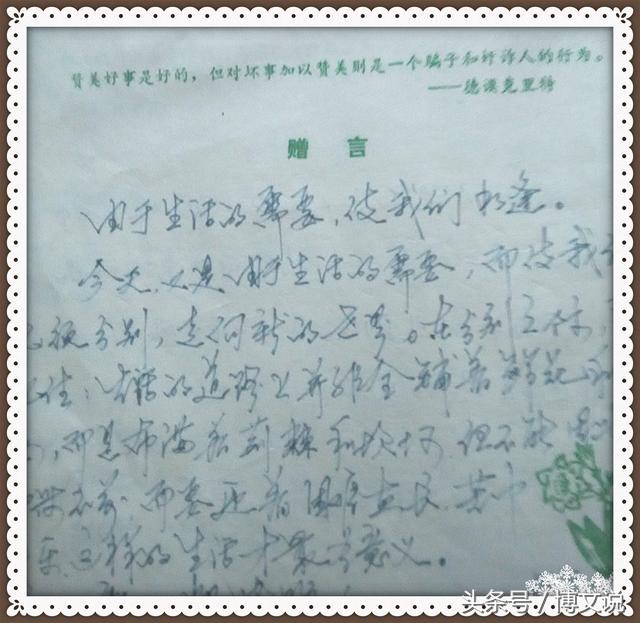 赞美好事是好的，但对坏事加以赞美则是一个骗子和奸诈人的行为。
——德谟克里特
赠言
由于生活的需要，使我们相逢。
今天，又是由于生活的需要，而使我们
分别，走向新的 。在分别之际，
住：生活的道路上并非全铺着鲜花
，而是布满着荆棘和坎坷 但不能
不前 而要迎着困难
这样的生活才最有意义。
头条号/博文说